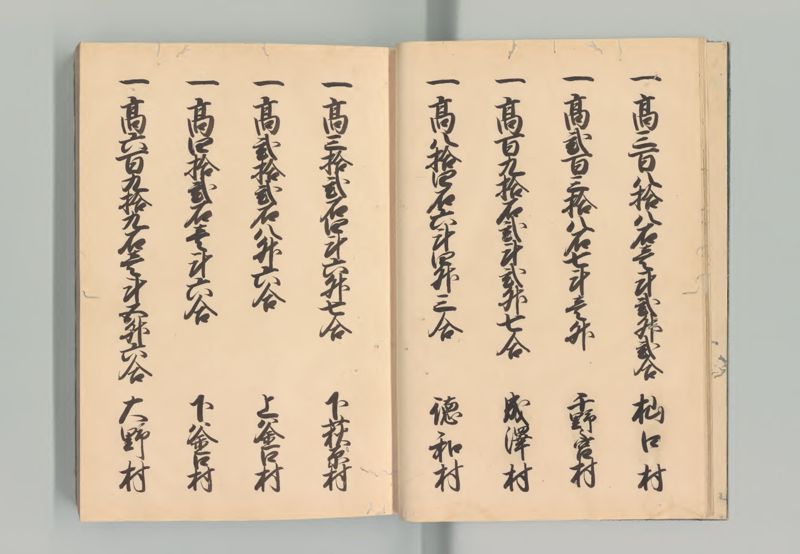 一高三百八拾八石壱斗弐升弐合 杣口村
一高弐百三拾八石七斗壱升 千野宮村
一高百九拾石弐斗弐升七合 成澤村
一高八拾四石六斗四升三合 徳和村
一高三拾弐石四斗六升七合 下荻原村
一高弐拾弐石八升六合 上釜口村
一高四拾弐石壱斗六合 下釜口村
一高六百九拾九石壱斗五升六合 大野村